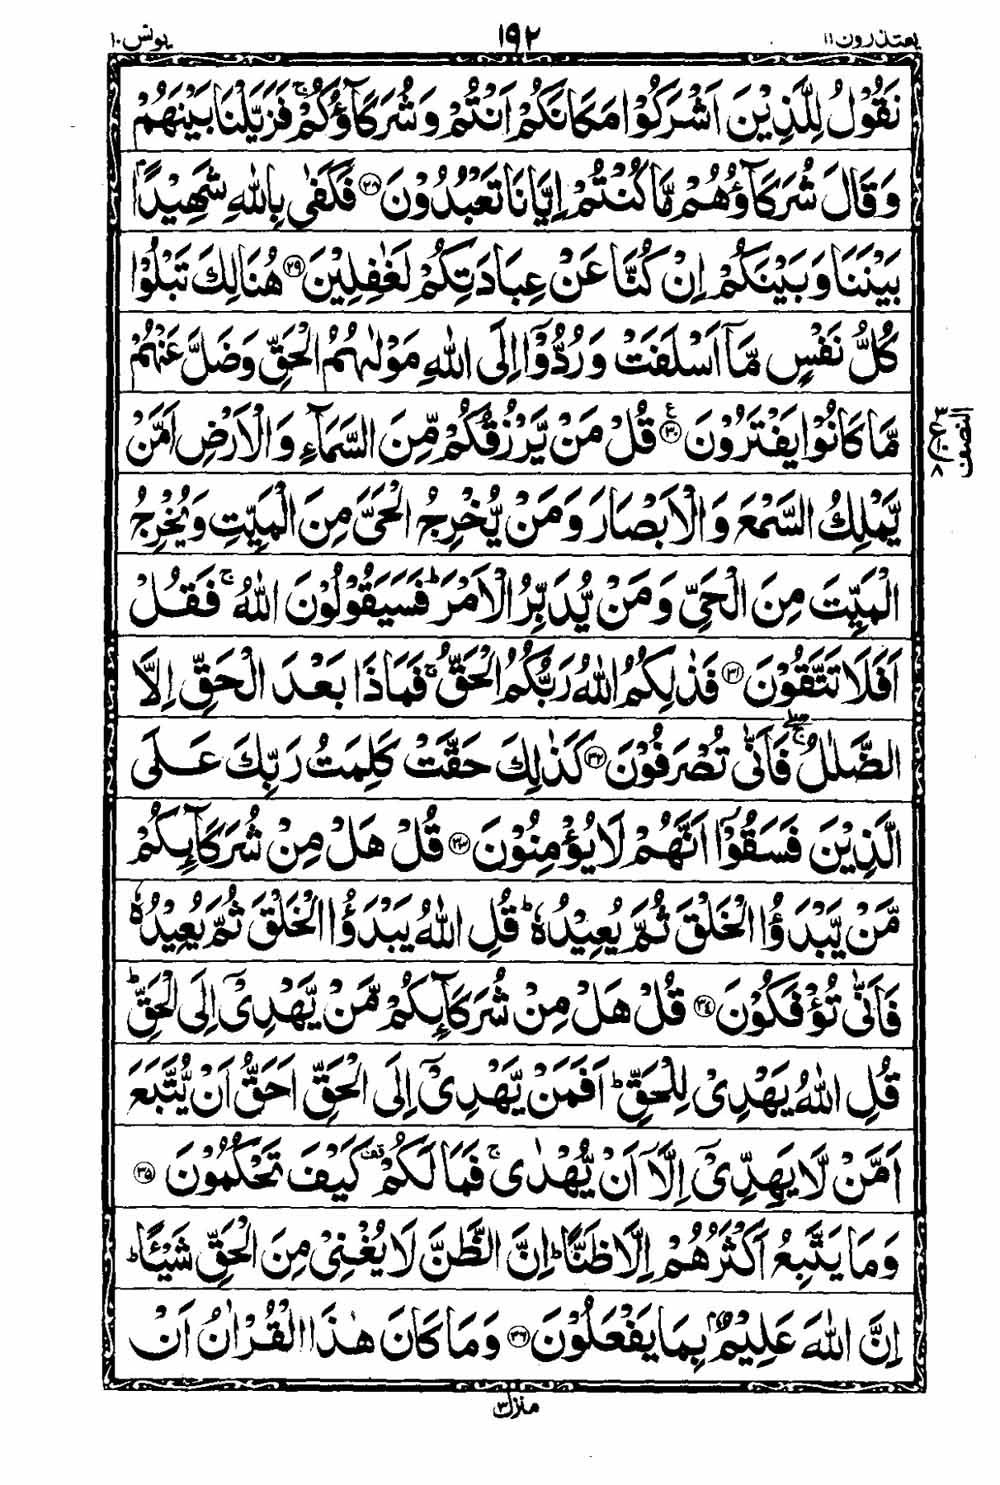 یعتذرون ۱۱ ۱۹۲ یونس ۱۰
نَقُوْلُ لِلَّذِیْنَ اَشْرَكُوْا مَكَانَكُمْ اَنْتُمْ وَشُرَكَآؤُكُمْ ۚ فَزَیَّلْنَا بَیْنَهُمْ
وَقَالَ شُرَكَآؤُهُمْ مَّا كُنْتُمْ اِیَّانَا تَعْبُدُوْنَ ﴿۲۸﴾ فَكَفٰی بِاللّٰهِ شَهِیْدًۢا
بَیْنَنَا وَبَیْنَكُمْ اِنْ كُنَّا عَنْ عِبَادَتِكُمْ لَغٰفِلِیْنَ ﴿۲۹﴾ هُنَالِكَ تَبْلُوْا
كُلُّ نَفْسٍ مَّاۤ اَسْلَفَتْ وَرُدُّوْۤا اِلَی اللّٰهِ مَوْلٰىهُمُ الْحَقِّ وَضَلَّ عَنْهُمْ
مَّا كَانُوْا یَفْتَرُوْنَ ﴿۳۰﴾ ع قُلْ مَنْ یَّرْزُقُكُمْ مِّنَ السَّمَآءِ وَالْاَرْضِ اَمَّنْ
النصف
یَّمْلِكُ السَّمْعَ وَالْاَبْصَارَ وَمَنْ یُّخْرِجُ الْحَیَّ مِنَ الْمَیِّتِ وَیُخْرِجُ
الْمَیِّتَ مِنَ الْحَیِّ وَمَنْ یُّدَبِّرُ الْاَمْرَ ؕ فَسَیَقُوْلُوْنَ اللّٰهُ ۚ فَقُلْ
اَفَلَا تَتَّقُوْنَ ﴿۳۱﴾ فَذٰلِكُمُ اللّٰهُ رَبُّكُمُ الْحَقُّ ۚ فَمَاذَا بَعْدَ الْحَقِّ اِلَّا
الضَّلٰلُ ۚۖ فَاَنّٰی تُصْرَفُوْنَ ﴿۳۲﴾ كَذٰلِكَ حَقَّتْ كَلِمَتُ رَبِّكَ عَلَی
الَّذِیْنَ فَسَقُوْۤا اَنَّهُمْ لَا یُؤْمِنُوْنَ ﴿۳۳﴾ قُلْ هَلْ مِنْ شُرَكَآىِٕكُمْ
مَّنْ یَّبْدَؤُا الْخَلْقَ ثُمَّ یُعِیْدُهٗ ؕ قُلِ اللّٰهُ یَبْدَؤُا الْخَلْقَ ثُمَّ یُعِیْدُهٗ
فَاَنّٰی تُؤْفَكُوْنَ ﴿۳۴﴾ قُلْ هَلْ مِنْ شُرَكَآىِٕكُمْ مَّنْ یَّهْدِیْۤ اِلَی الْحَقِّ ؕ
قُلِ اللّٰهُ یَهْدِیْ لِلْحَقِّ ؕ اَفَمَنْ یَّهْدِیْۤ اِلَی الْحَقِّ اَحَقُّ اَنْ یُّتَّبَعَ
اَمَّنْ لَّا یَهِدِّیْۤ اِلَّاۤ اَنْ یُّهْدٰی ۚ فَمَا لَكُمْ قف كَیْفَ تَحْكُمُوْنَ ﴿۳۵﴾
وَمَا یَتَّبِعُ اَكْثَرُهُمْ اِلَّا ظَنًّا ؕ اِنَّ الظَّنَّ لَا یُغْنِیْ مِنَ الْحَقِّ شَیْـًٔا ؕ
اِنَّ اللّٰهَ عَلِیْمٌۢ بِمَا یَفْعَلُوْنَ ﴿۳۶﴾ وَمَا كَانَ هٰذَا الْقُرْاٰنُ اَنْ
منزل ۳